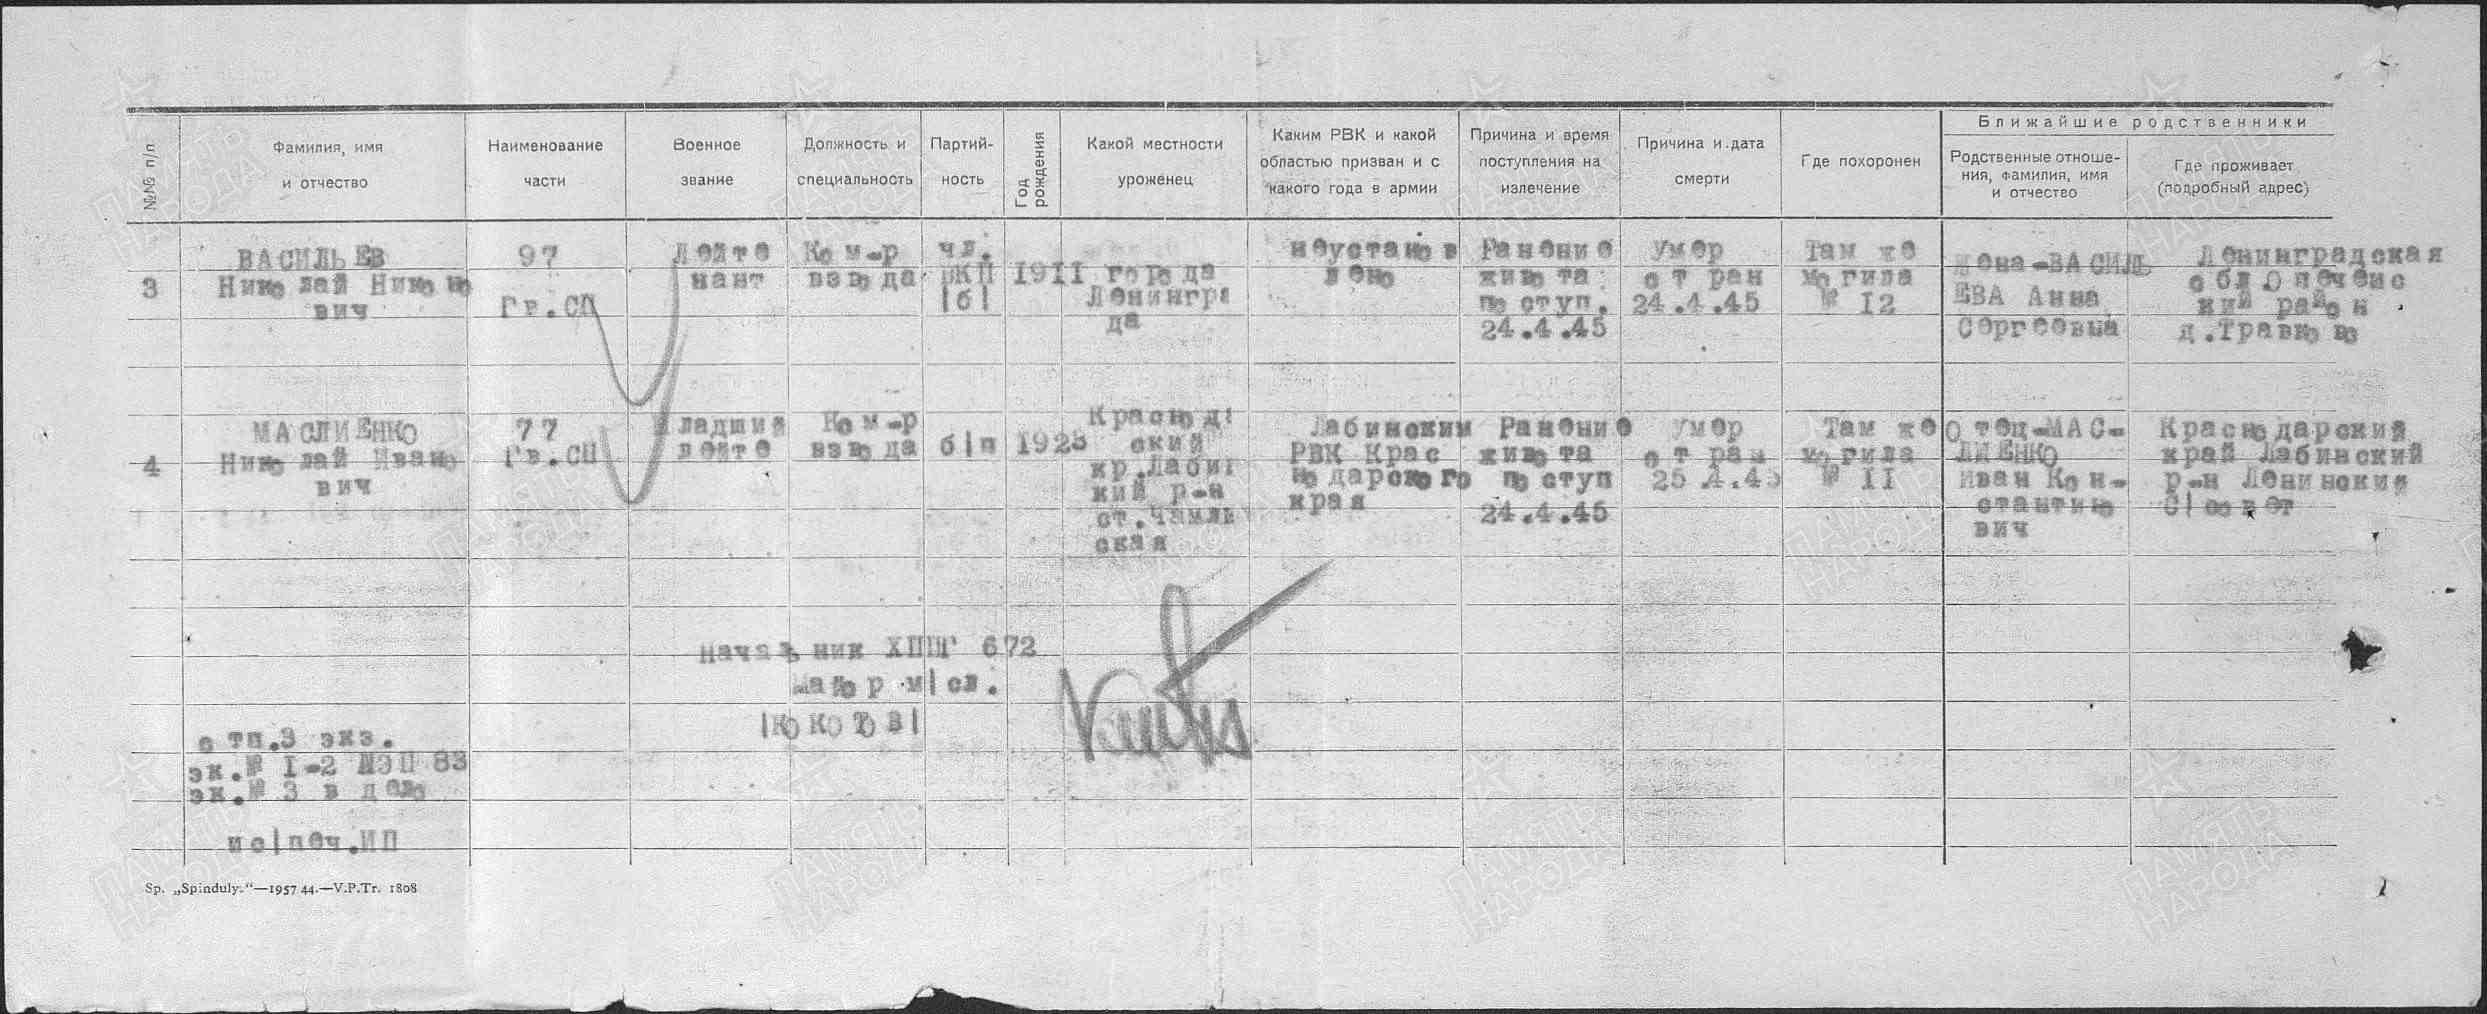 №№ п/п
Фамилия, имя
и отчество
Наименование
части
Военное
звание
Должность и
специальность
Партий-
ность
Год
рождения
Какой местности
уроженец
Каким РВК и какой
областью призван и с
какого года в армии
Причина и время
поступления на
излечение
Причина и дата
смерти
Где похоронен
Ближайшие родственники
Родственные отноше-
ния, фамилия, имя
и отчество
Где проживает
(подробный адрес)
3
ВАСИЛЬЕВ
Николай Никоно
вич
97
Гв.СП
Лейте
нант
Ком-р
взвода
чл.
ВКП
|б|
1911
города
Ленингра
да
неустанов
лено
Ранение
живота
поступ.
24.4.45
Умер
от ран
24.4.45
Там же
могила
№ 12
жена-ВАСИЛЬ
ЕВА Анна
Сергеевна
Ленинградская
обл.Опеченс
кий район
д.Травково
4
МАСЛИЕНКО
Николай Ивано
вич
77
Гв.СП
Младший
лейте
Ком-р
взвода
б|п
1923
Краснода
ский
кр.Лабин
кий р-н
ст.Чамлы
ская
Лабинским
РВК Крас
нодарского
края
Ранение
живота
поступ
24.4.45
Умер
от ран
25.4.45
Там же
могила
№ 11
Отец-МАС-
ЛИЕНКО
Иван Кон-
стантино
вич
Краснодарский
край Лабинский
р-н Ленинский
С|совет
Начальник ХППГ 672
Майор м|сл.
|КОКОТОВ|
отп.3 экз.
эк.№ 1-2 МЭП 83
эк.№ 3 в дело
ис|печ.ИП
Sp. „Spindulys“—1957 44.—V.P.Tr. 1808
ПАМЯТЬ
НАРОДА